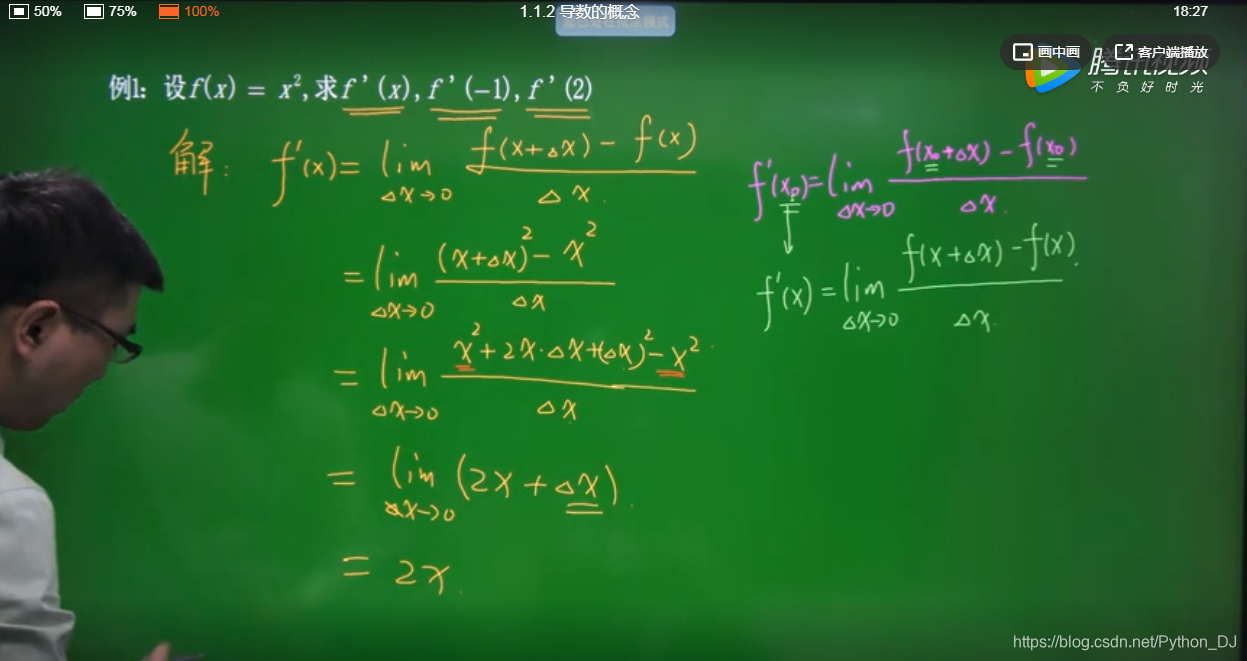 50% 75% 100% 1.1.2 导数的概念 18:27
画中画 客户端播放
腾讯视频
不负好时光
例1: 设f(x) = x², 求f'(x), f'(−1), f'(2)
解: f'(x) = lim Δx→0 (f(x+Δx) − f(x)) / Δx
= lim Δx→0 ((x+Δx)² − x²) / Δx
= lim Δx→0 (x² + 2x·Δx + (Δx)² − x²) / Δx
= lim Δx→0 (2x + Δx)
= 2x
f'(x₀) = lim Δx→0 (f(x₀+Δx) − f(x₀)) / Δx
f'(x) = lim Δx→0 (f(x+Δx) − f(x)) / Δx
https://blog.csdn.net/Python_DJ